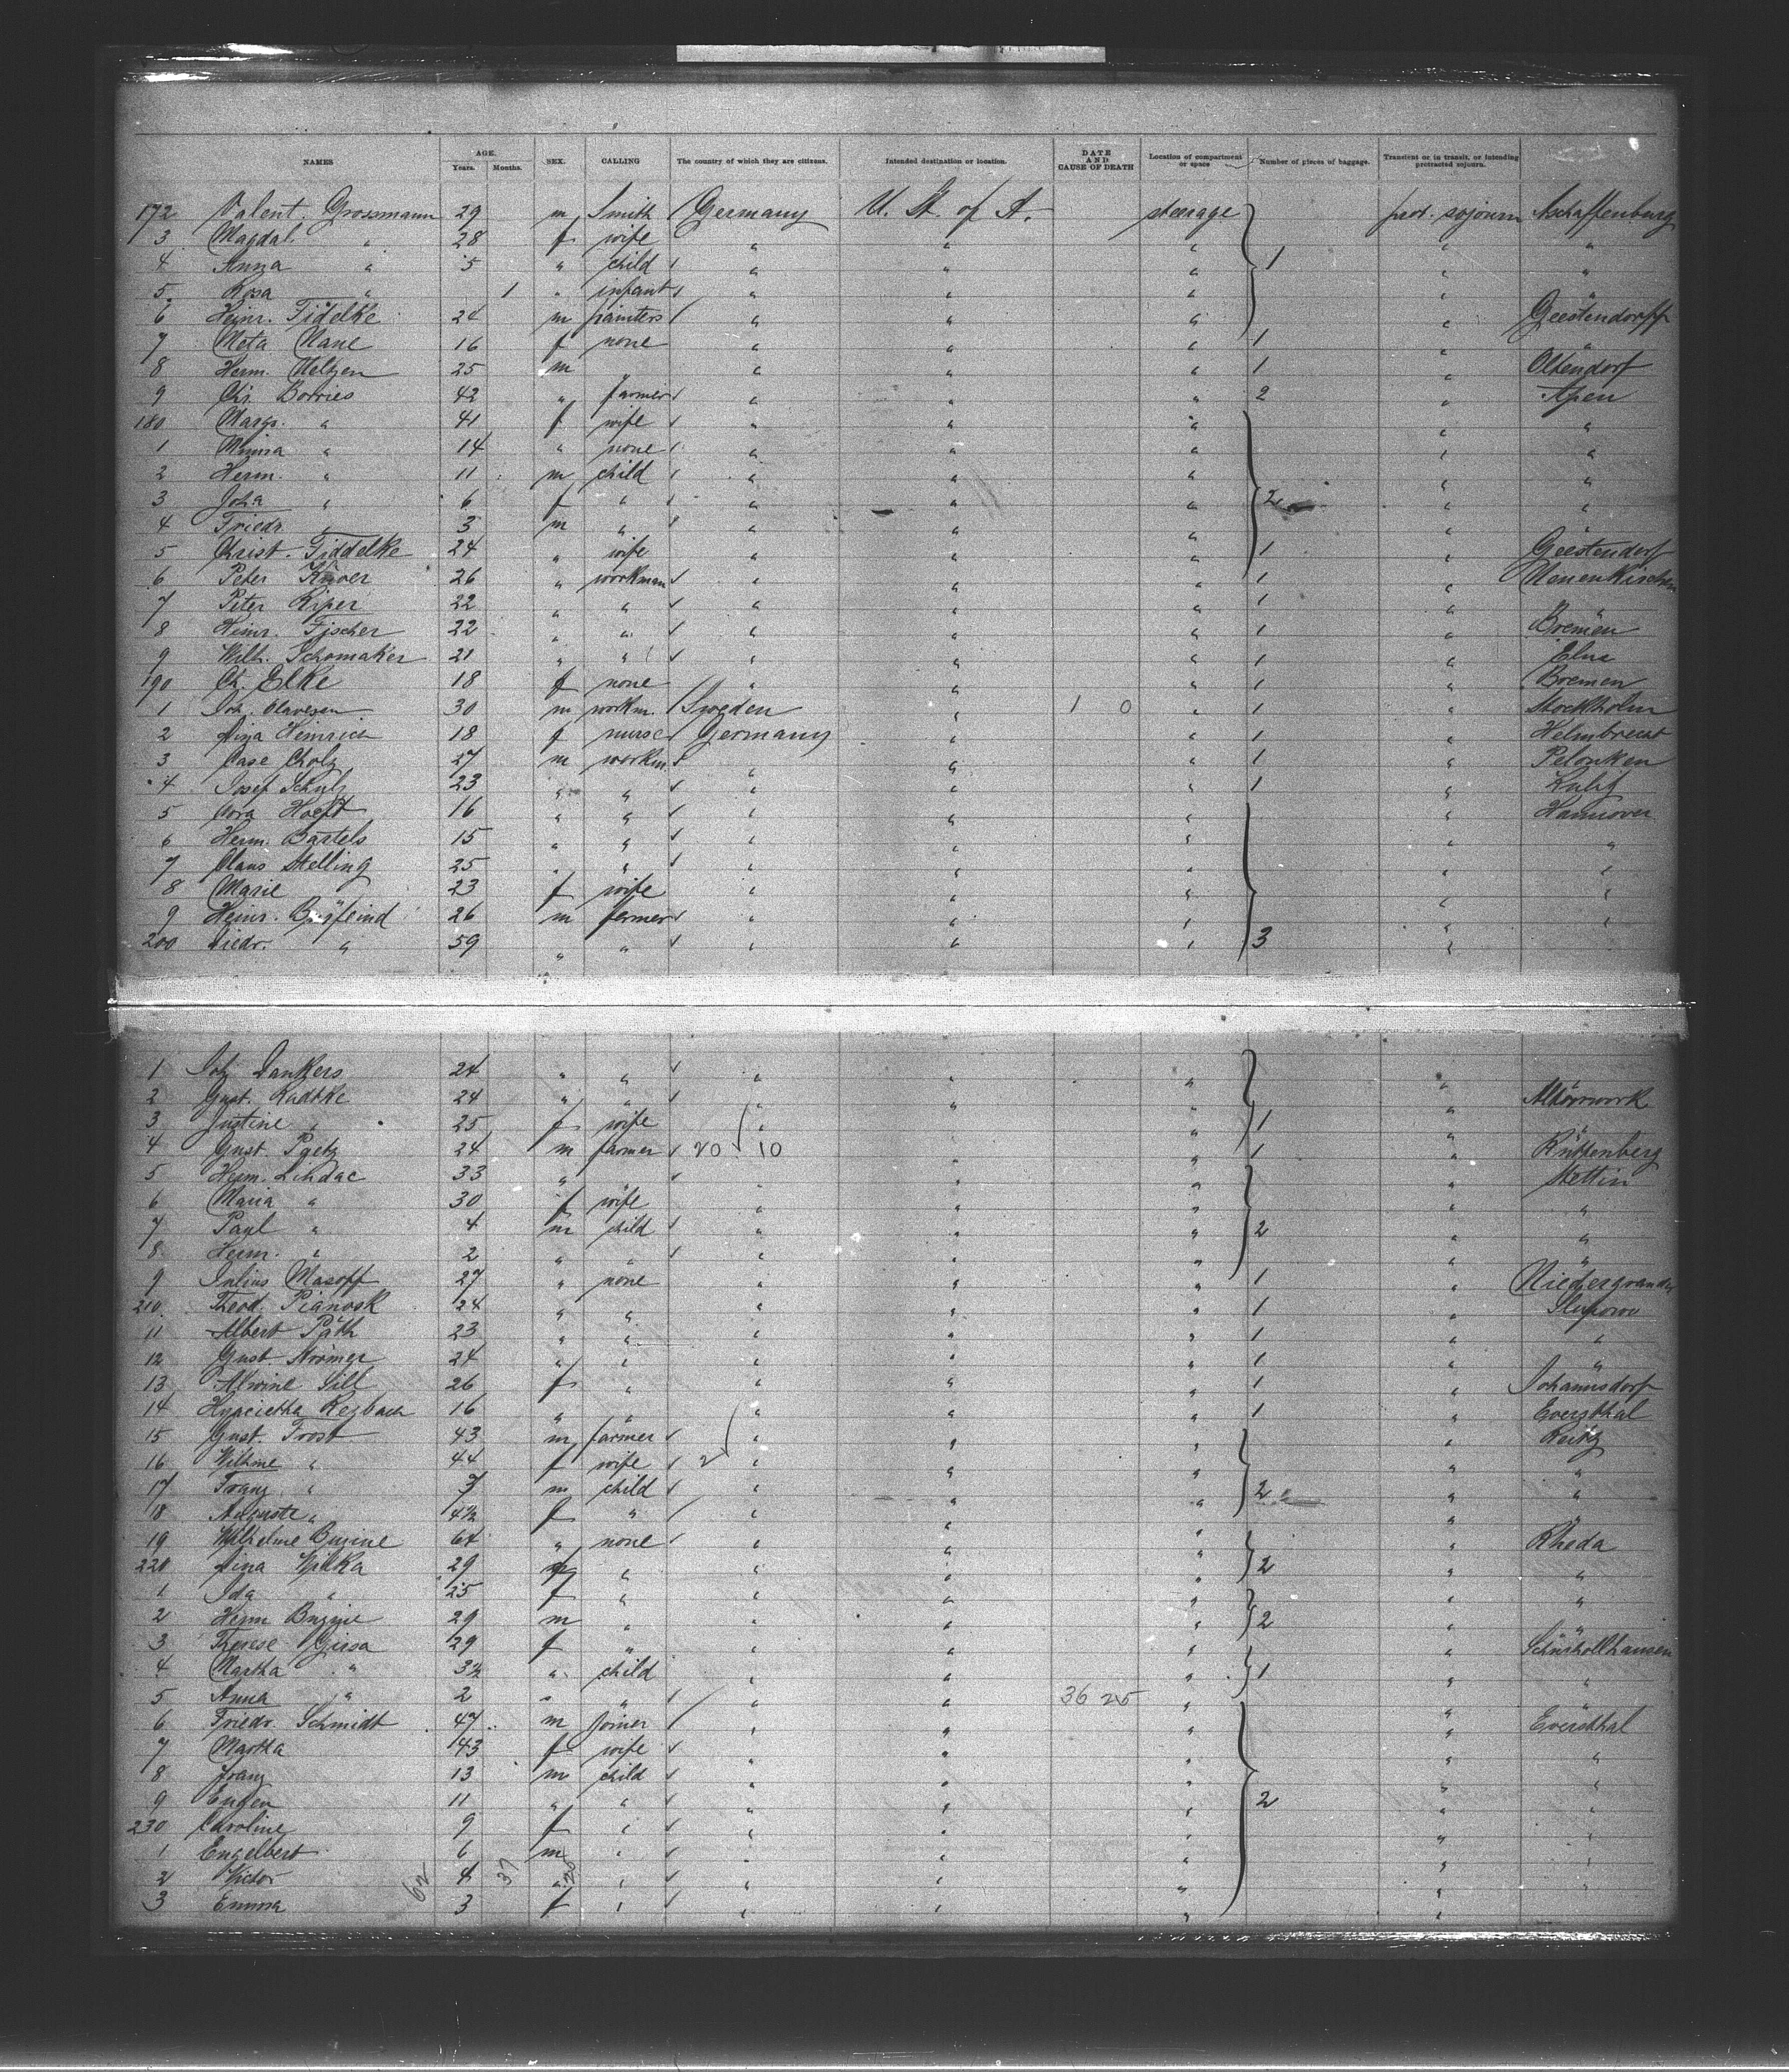 NAMES AGE. Years. Months. SEX. CALLING The country of which they are citizens. Intended destination or location. DATE AND CAUSE OF DEATH Location of compartment or space Number of pieces of baggage. Transient or in transit, or intending protracted sojourn.
172 Valent. Grossmann 29 m Smith Germany U. St. of A. steerage prot. sojourn Aschaffenburg
3 Magdal. " 28 f wife " " " " "
4 Anna " 5 " child " " " 1 " "
5 Rosa " 1 " infant " " " " "
6 Heinr. Fidelke 24 m painters " " " " Geestendorff
7 Meta Nane 16 f none " " " 1 " "
8 Herm. Uelzen 25 m " " " 1 " Oltendorf
9 Chr. Borries 42 " farmer " " " 2 " Apen
180 Margr. " 41 f wife " " " " "
1 Minna " 14 " none " " " " "
2 Herm. " 11 m child " " " " "
3 Joha " 6 f " " " " 2 " "
4 Friedr. " 3 m " " " " " "
5 Christ. Fiddelke 24 " wife " " " 1 " Geestendorf
6 Peter Knoer 26 " workman " " " 1 " Neuenkirchen
7 Peter Riper 22 " " " " " 1 " "
8 Heinr. Fischer 22 " " " " " 1 " Bremen
9 Wilh. Schomaker 21 " " " " " 1 "
190 Ch. Elke 18 f none " " " 1 " Bremen
1 Joh. Olavesen 30 m workm. Sweden " 1 0 " 1 " Stockholm
2 Heinrich 18 f nurse Germany " " 1 " Helmbrecht
3 Case Cholz 27 m workm. " " " 1 " Pelonken
4 Josef Schulz 23 " " " " " 1 " Kulig
5 Cora Hoeft 16 " " " " " " Hannover
6 Herm. Bartels 15 " " " " " " "
7 Claus Stelling 25 " " " " " " "
8 Marie 23 f wife " " " " "
9 Heinr. 26 m farmer " " " " "
200 Diedr. " 59 " " " " " 3 "
1 Joh. Dankers 24 " " " " " "
2 Gust. Radtke 24 " " " " " "
3 Justine " 25 f wife " " 1 "
4 Gust. Paetz 24 m farmer 20 10 " " 1 " Rüttenberg
5 Herm. Lindae 33 " " " " Stettin
6 Maria " 30 f wife " " " " "
7 Paul " 4 m child " " " 2 " "
8 Herm. " 2 " " " " " " "
9 Julius Masoff 27 " none " " " 1 "
210 Theod. Pianosk 24 " " " " " 1 "
11 Albert Päth 23 " " " " " 1 " "
12 Gust. 24 " " " " " 1 " "
13 Alwine Sill 26 f " " " " 1 " Johannsdorf
14 Hyacietha 16 " " " " " 1 " Eversthal
15 Gust. Trost 43 m farmer " " " "
16 Wilhme " 44 f wife 2 " " " " "
17 Franz " 7 m child " " " 2 " "
18 Auguste " 4½ f " " " " " "
19 Wilhelme Buzine 64 " none " " " " Rheda
220 29 " " " " 2 " "
1 Ida " 25 f " " " " " "
2 Herm Buzine 29 m " " " " 2 " "
3 Therese Girsa 29 f " " " " "
4 Martha " 3½ " child " " " 1 " "
5 Anna " 2 " " " " 36 25 " " "
6 Friedr. Schmidt 47 m Joiner " " " " Eversthal
7 Martha 43 f wife " " " " "
8 Franz 13 m child " " " " "
9 Eugen 11 " " " " " 2 " "
230 Caroline 9 f " " " " " "
1 Engelbert 6 m " " " " " "
2 Victor 4 " " " " " " "
3 Emma 3 f " " " " "
62 37 25